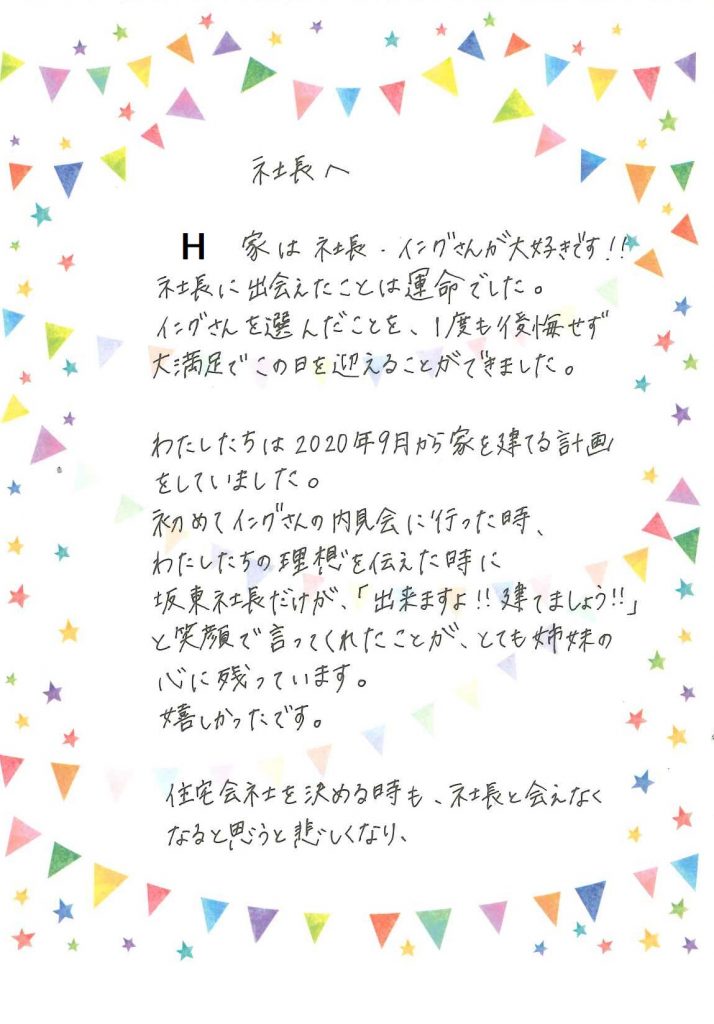 社長へ
H 家は社長・イングさんが大好きです!!
社長に出会えたことは運命でした。
イングさんを選んだことを、1度も後悔せず
大満足でこの日を迎えることができました。
わたしたちは2020年9月から家を建てる計画
をしていました。
初めてイングさんの内見会に行った時、
わたしたちの理想を伝えた時に
坂東社長だけが、「出来ますよ!!建てましょう!!」
と笑顔で言ってくれたことが、とても姉妹の
心に残っています。
嬉しかったです。
住宅会社を決める時も、社長と会えなく
なると思うと悲しくなり、